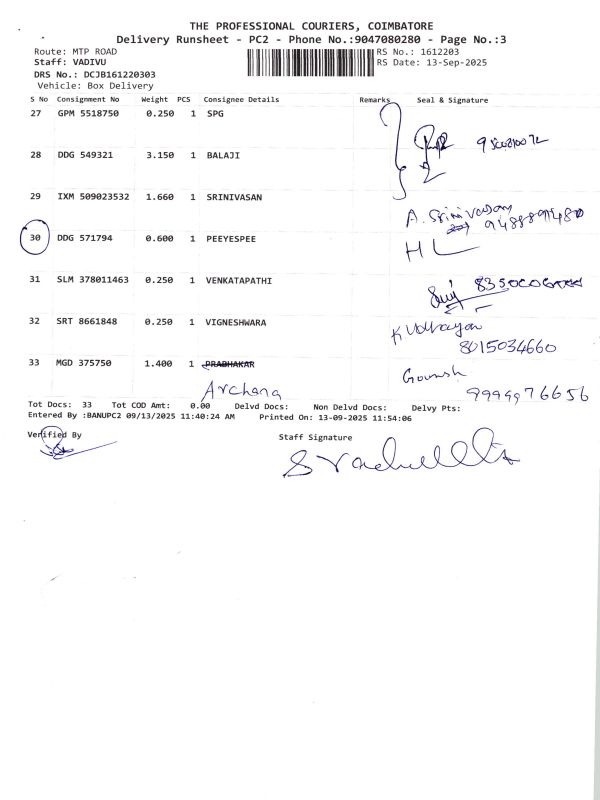 THE PROFESSIONAL COURIERS, COIMBATORE
Delivery Runsheet - PC2 - Phone No.:9047080280 - Page No.:3
Route: MTP ROAD RS No.: 1612203
Staff: VADIVU RS Date: 13-Sep-2025
DRS No.: DCJB161220303
Vehicle: Box Delivery
S No Consignment No Weight PCS Consignee Details Remarks Seal & Signature
27 GPM 5518750 0.250 1 SPG
28 DDG 549321 3.150 1 BALAJI
29 IXM 509023532 1.660 1 SRINIVASAN
A. Srinivasan
30 DDG 571794 0.600 1 PEEYESPEE
HL
31 SLM 378011463 0.250 1 VENKATAPATHI
32 SRT 8661848 0.250 1 VIGNESHWARA
8015034660
33 MGD 375750 1.400 1 PRABHAKAR
Archana 9999976656
Tot Docs: 33 Tot COD Amt: 0.00 Delvd Docs: Non Delvd Docs: Delvy Pts:
Entered By :BANUPC2 09/13/2025 11:40:24 AM Printed On: 13-09-2025 11:54:06
Verified By Staff Signature